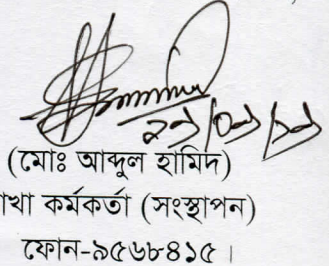 ২১/০১/১১
(মোঃ আব্দুল হামিদ)
খা কর্মকর্তা (সংস্থাপন)
ফোন-৯৫৬৮৪১৫।